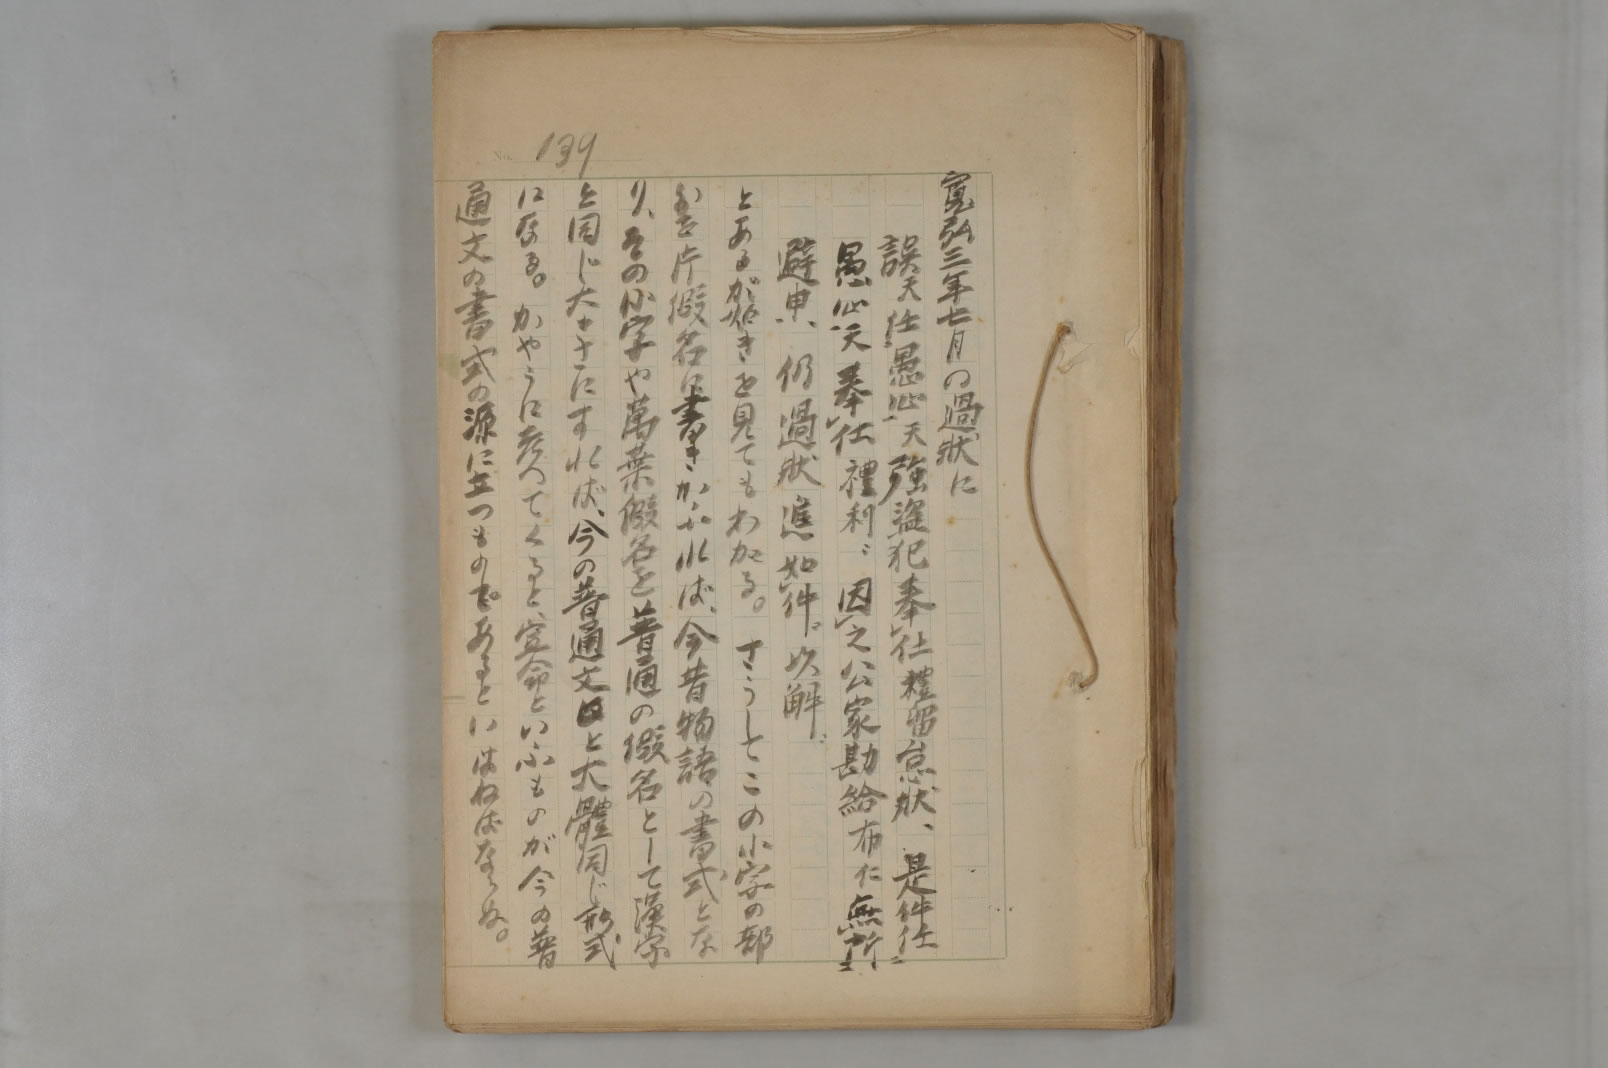 139
寛弘三年七月の過狀に
誤天仕愚心天強盗犯奉仕禮留怠狀、是件仕
愚心天奉仕禮利 因之公家勘給布仁無所
避申、仍過狀進如件、以解
とあるが如きを見てもわかる。さうしてこの小字の部
分を片假名に書きかふれば、今昔物語の書式とな
り、その小字や萬葉假名を普通の假名として漢字
と同じ大きさにすれば、今の普通文と大體同じ形式
になる。かやうに考へてくると、宣命といふものが今の普
通文の書式の源に立つものであるといはねばならぬ。